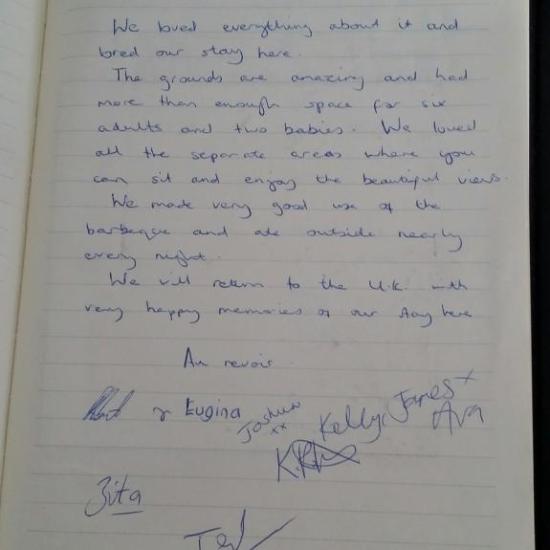 We loved everything about it and
loved our stay here.
The grounds are amazing and had
more than enough space for six
adults and two babies. We loved
all the separate areas where you
can sit and enjoy the beautiful views.
We made very good use of the
barbeque and ate outside nearly
every night.
We will return to the U.K. with
very happy memories of our stay here
Au revoir
& Eugina
Joshua
xx
Kelly.
James +
Ava
Zita